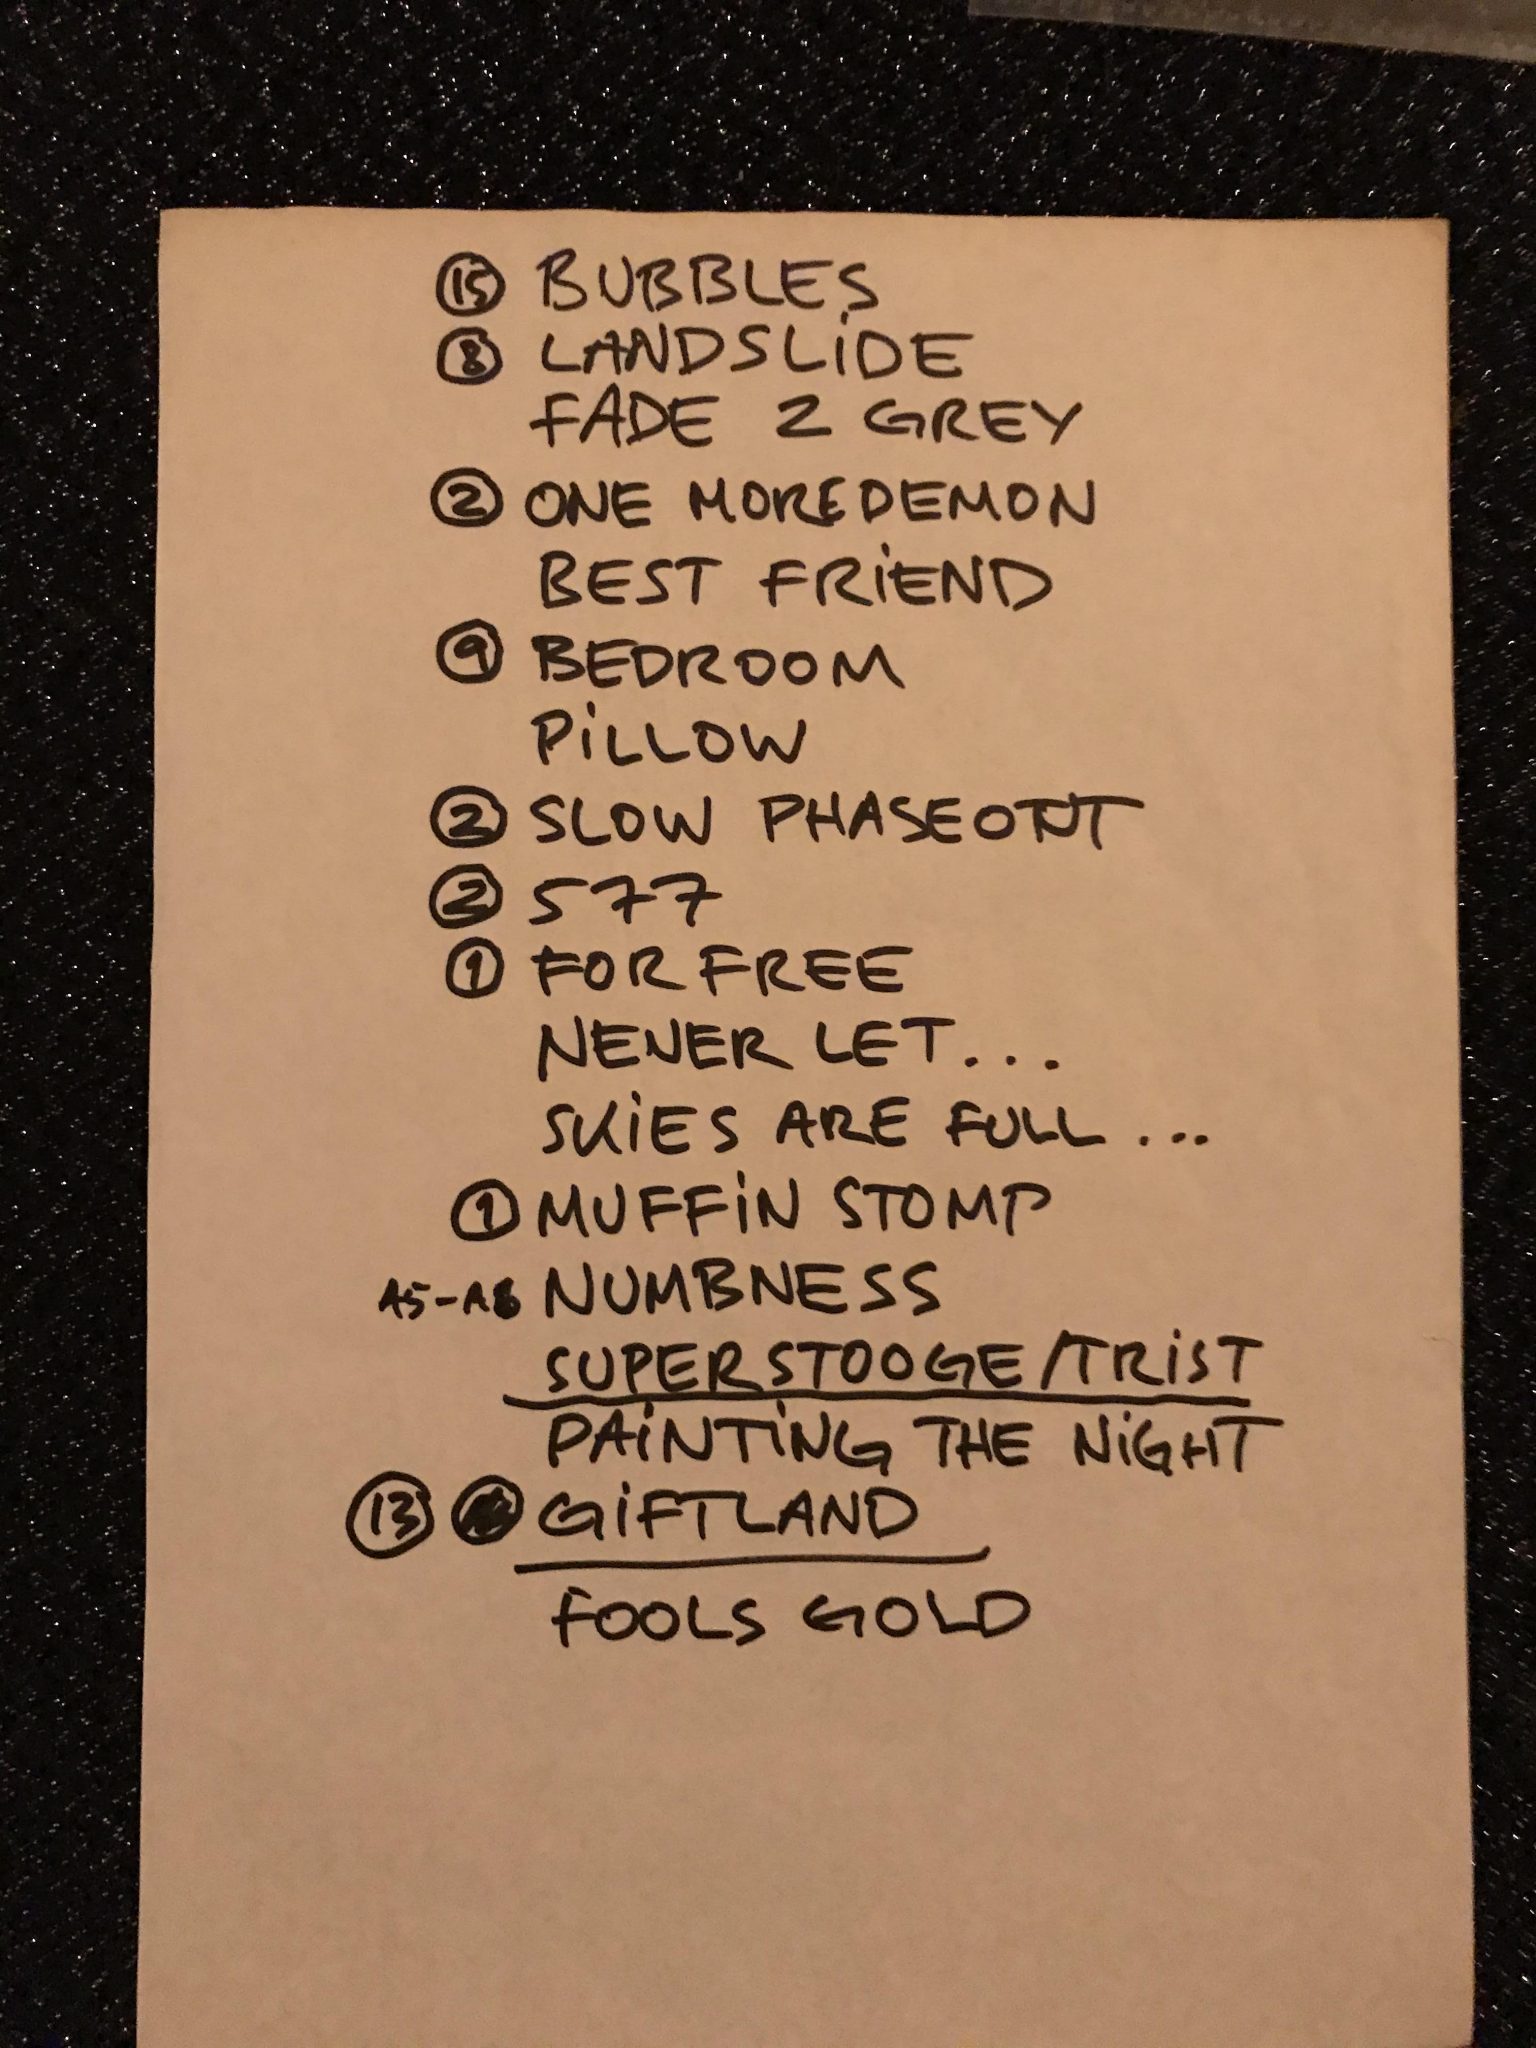 15 BUBBLES
8 LANDSLiDE
FADE 2 GREY
2 ONE MORE DEMON
BEST FRiEND
9 BEDROOM
PiLLOW
2 SLOW PHASEOUT
2 577
9 FOR FREE
NEVER LET...
SKiES ARE FULL...
9 MUFFiN STOMP
A5-A8 NUMBNESS
SUPERSTOOGE/TRiST
PAiNTiNG THE NiGHT
13 GiFTLAND
FOOLS GOLD